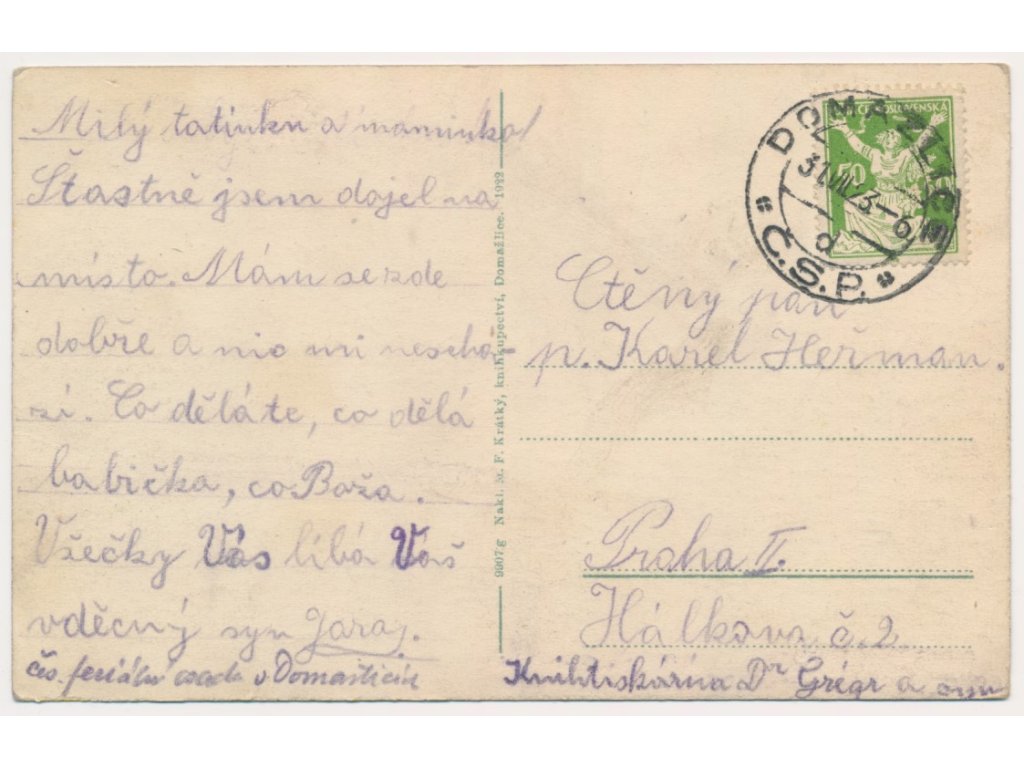 Milý tatínku a maminko!
Šťastně jsem dojel na
místo. Mám se zde
dobře a nic mi neschá-
zí. Co děláte, co dělá
babička, co Boža.
Všečky Vás líbá Váš
vděčný syn Jara.
čs. feriální osada v Domažlicích
9907g Nakl. M. F. Krátký, knihkupectví, Domažlice. 1922
ČESKOSLOVENSKÁ
50
DOMAŽLICE
31.VII.23-6
d
Č.S.P.
Ctěný pan
p. Karel Heřman.
Praha II.
Hálkova č. 2
Knihtiskárna Dr Grégr a syn